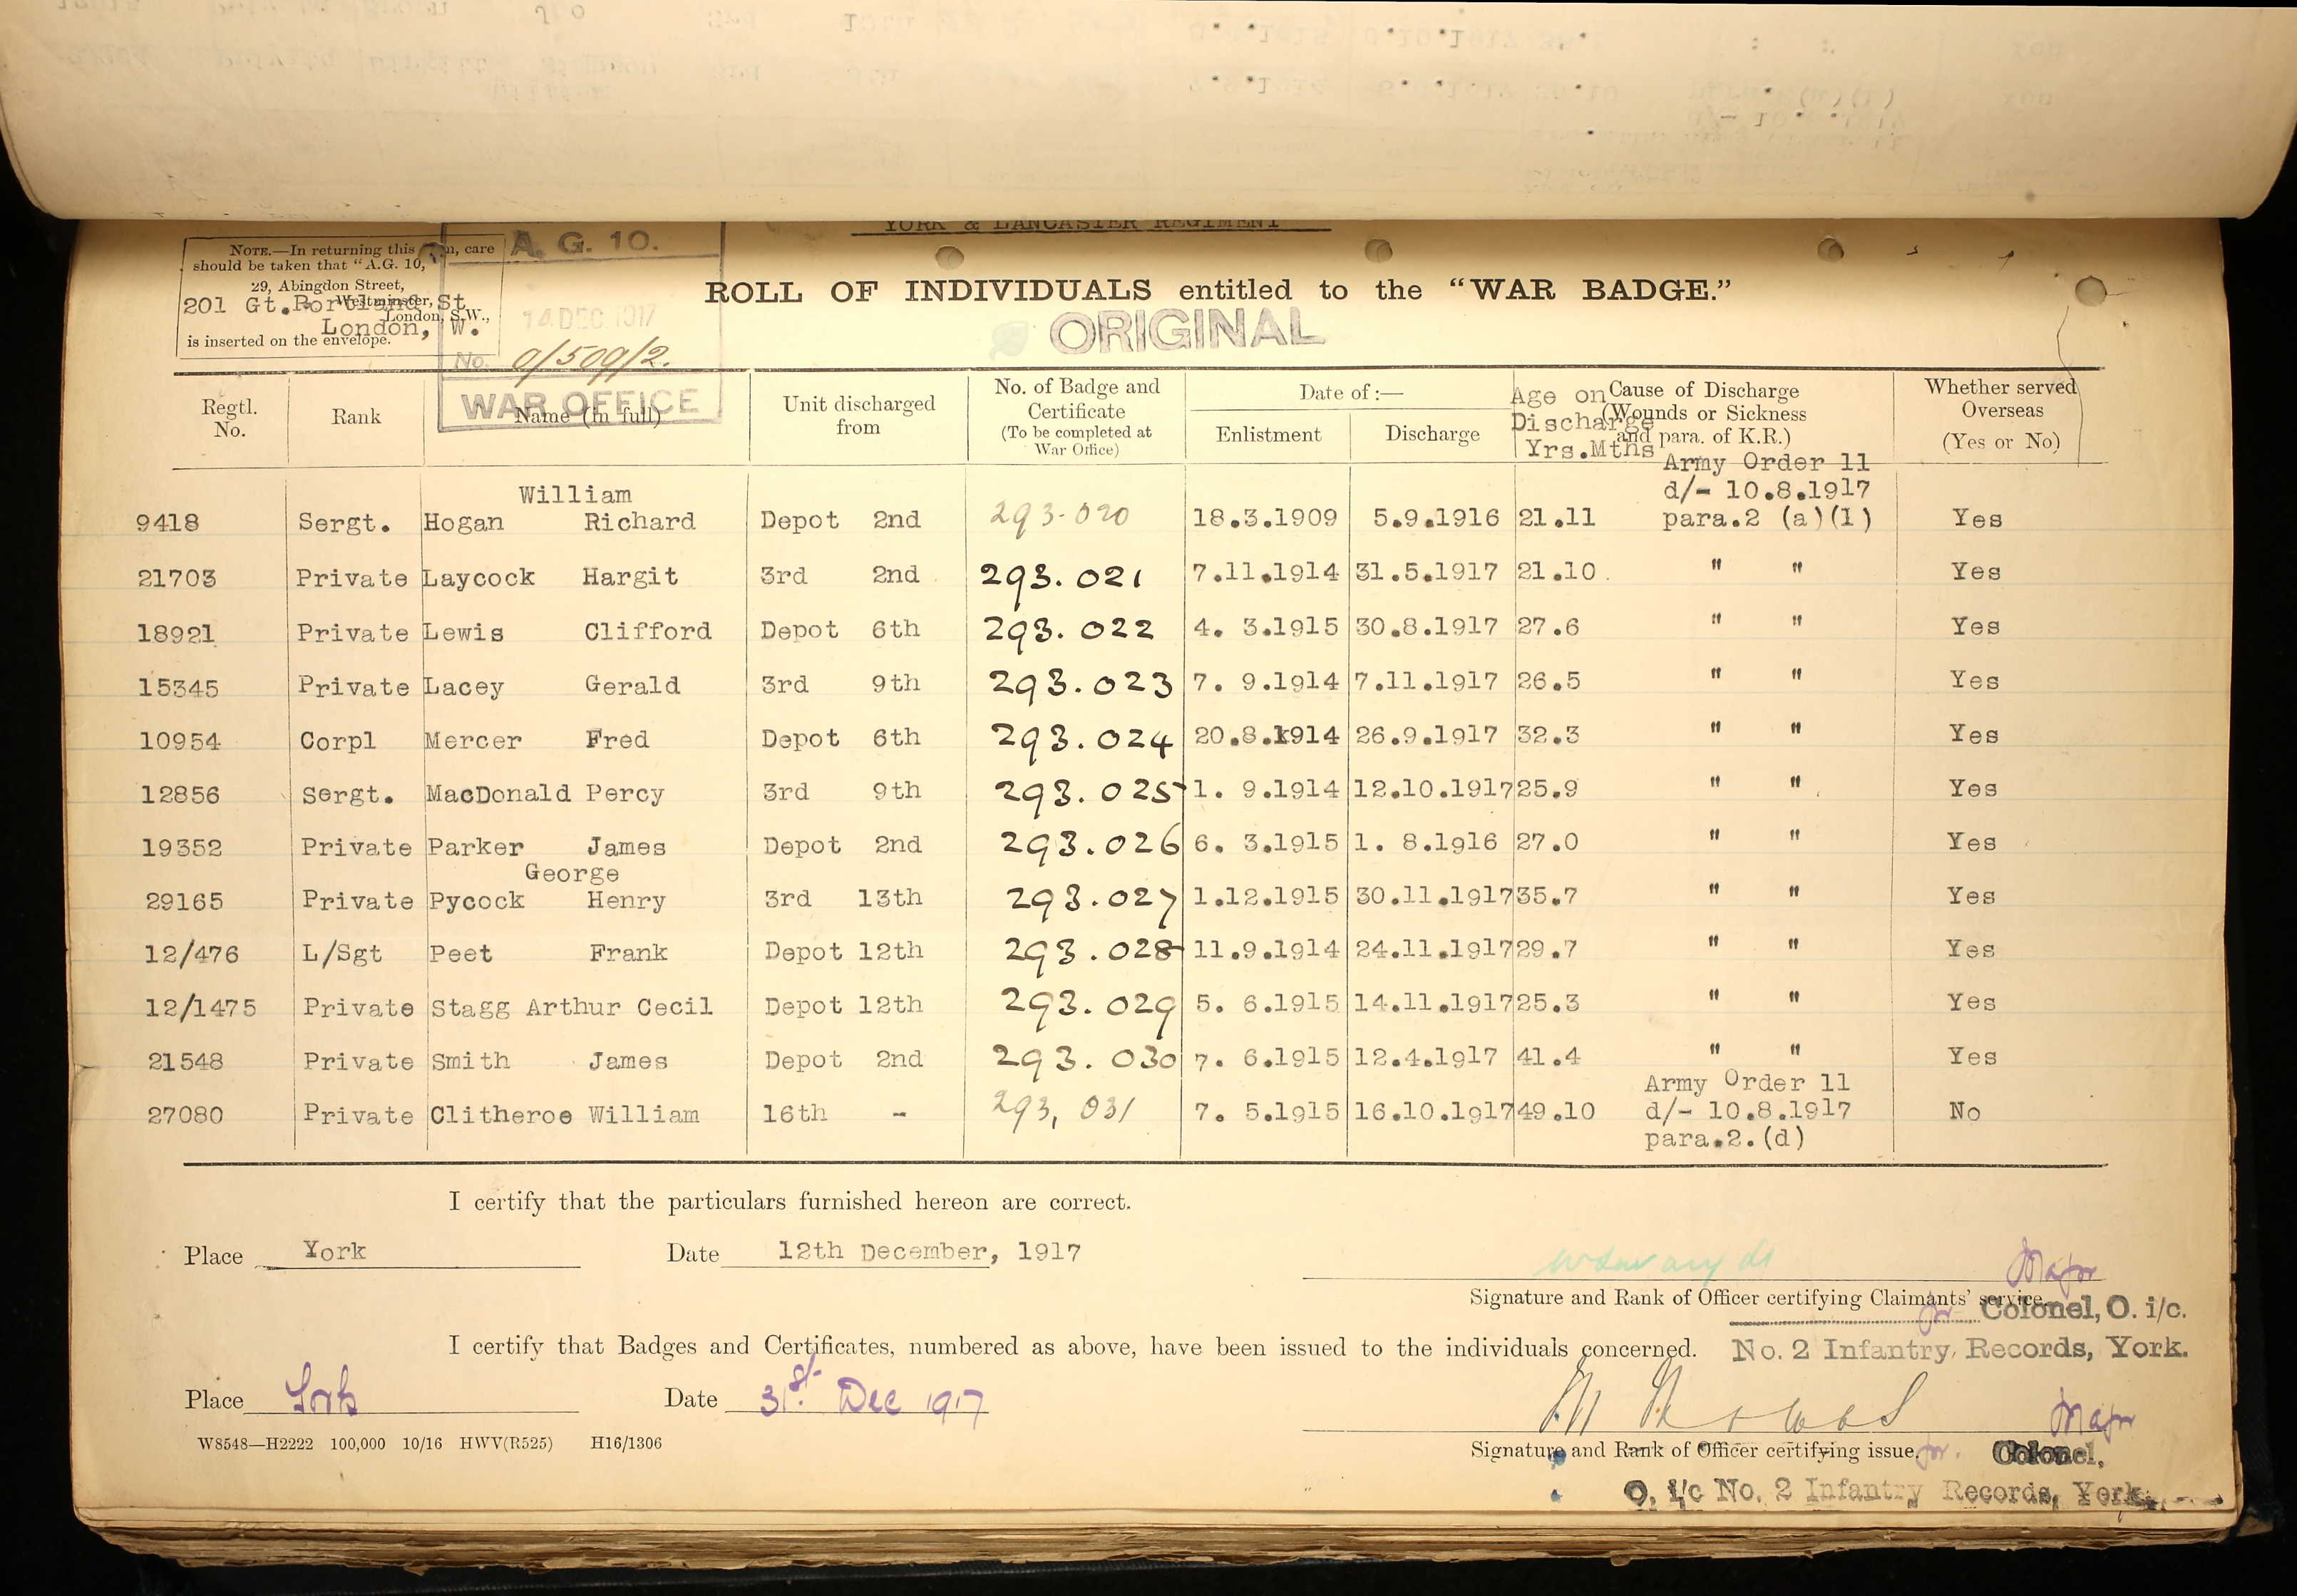 YORK & LANCASTER REGIMENT
NOTE.—In returning this care
should be taken that "A.G. 10,"
29, Abingdon Street,
Westminster,
London, S.W.,
201 Gt.Portland St
London, W.
is inserted on the envelope.
A. G. 10.
14 DEC 1917
No. 0/509/2.
WAR OFFICE
ROLL OF INDIVIDUALS entitled to the "WAR BADGE."
ORIGINAL
Regtl. No. Rank Name (in full) Unit discharged from No. of Badge and Certificate (To be completed at War Office) Date of:— Enlistment Discharge Age on Discharge Yrs.Mths Cause of Discharge (Wounds or Sickness and para. of K.R.) Whether served Overseas (Yes or No)
Army Order 11
William d/- 10.8.1917
9418 Sergt. Hogan Richard Depot 2nd 293.020 18.3.1909 5.9.1916 21.11 para.2 (a)(1) Yes
21703 Private Laycock Hargit 3rd 2nd 293.021 7.11.1914 31.5.1917 21.10 " " Yes
18921 Private Lewis Clifford Depot 6th 293.022 4. 3.1915 30.8.1917 27.6 " " Yes
15345 Private Lacey Gerald 3rd 9th 293.023 7. 9.1914 7.11.1917 26.5 " " Yes
10954 Corpl Mercer Fred Depot 6th 293.024 20.8.1914 26.9.1917 32.3 " " Yes
12856 Sergt. MacDonald Percy 3rd 9th 293.025 1. 9.1914 12.10.1917 25.9 " " Yes
19352 Private Parker James Depot 2nd 293.026 6. 3.1915 1. 8.1916 27.0 " " Yes
George
29165 Private Pycock Henry 3rd 13th 293.027 1.12.1915 30.11.1917 35.7 " " Yes
12/476 L/Sgt Peet Frank Depot 12th 293.028 11.9.1914 24.11.1917 29.7 " " Yes
12/1475 Private Stagg Arthur Cecil Depot 12th 293.029 5. 6.1915 14.11.1917 25.3 " " Yes
21548 Private Smith James Depot 2nd 293.030 7. 6.1915 12.4.1917 41.4 " " Yes
Army Order 11
27080 Private Clitheroe William 16th - 293,031 7. 5.1915 16.10.1917 49.10 d/- 10.8.1917 No
para.2.(d)
I certify that the particulars furnished hereon are correct.
Place York Date 12th December, 1917
Major
Signature and Rank of Officer certifying Claimants' service
for Colonel, O. i/c.
I certify that Badges and Certificates, numbered as above, have been issued to the individuals concerned. No. 2 Infantry Records, York.
Place York Date 31st. Dec 1917
Major
W8548—H2222 100,000 10/16 HWV(R525) H16/1306
Signature and Rank of Officer certifying issue. for. Colonel,
O. i/c No. 2 Infantry Records, York.